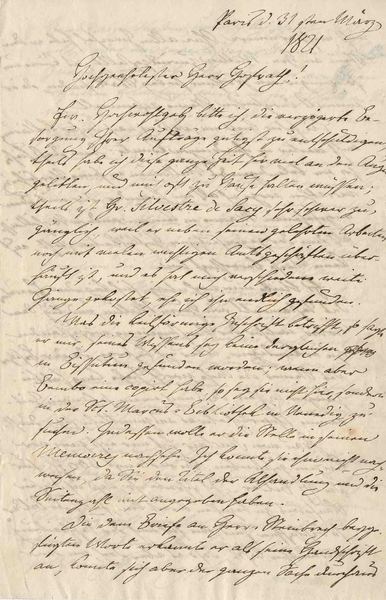 Paris d. 31sten März
1821
Hochzuverehrender Herr Hofrath!
Ew. Hochwohlgeb. bitte ich, die verzögerte Be-
sorgung Ihrer Aufträge gütigst zu entschuldigen
theils habe ich diese ganze Zeit sehr viel an den Augen
gelitten, und mich oft zu Hause halten müssen;
theils ist Hr. Silvestre de Sacy sehr schwer zu-
gänglich, weil er neben seinen gelehrten Arbeiten
noch mit vielen wichtigen Amtsgeschäften über-
häuft ist, und es hat mich verschiedene weite
Gänge gekostet, ehe ich ihn endlich gefunden.
Was die keilförmige Inschrift betrifft, so sagte
er mir, seines Wissens sey keine dergleichen
in gefunden worden; wenn aber
eine copirt habe, so sey sie nicht hier, sondern
in der St. Marcus-Bibliothek in Venedig zu
suchen. Indessen wolle er die Stelle in seinen
Memoires nachsehen. Ich konnte sie ihm nicht nach-
weisen, da Sie den Titel der Abhandlung und die
Seitenzahl nicht angegeben haben.
Die dem Briefe an Herrn beyge-
fügten Worte erkannte er als seine Handschrift
an, konnte sich aber der ganzen Sache durchaus